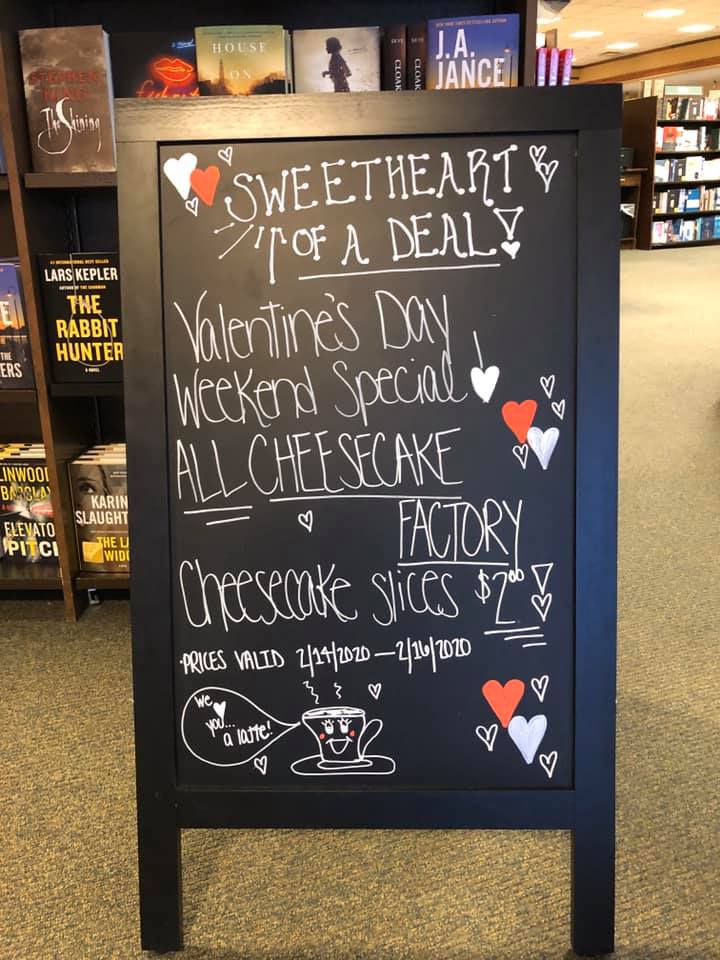 STEPHEN KING
The Shining
HOUSE
ON
CLOAK
CLOAK
J.A.
JANCE
LARS KEPLER
THE
RABBIT
HUNTER
A NOVEL
THE
ERS
LINWOOD
BARCLAY
ELEVATO
PITCH
KARIN
SLAUGHT
THE LA
WIDO
SWEETHEART
OF A DEAL!
Valentine's Day
Weekend Special!
ALL CHEESECAKE
FACTORY
Cheesecake slices $2.00!
•PRICES VALID 2/14/2020 — 2/16/2020
We
you...
a latte!